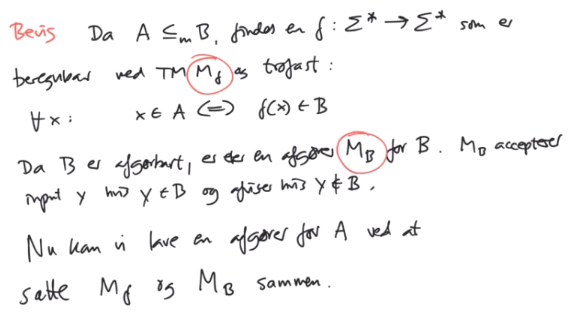 Bevis Da A ≤ₘ B, findes en f: Σ* → Σ* som er
beregnbar ved TM M_f og trofast:
∀x: x ∈ A ⟺ f(x) ∈ B
Da B er afgørbart, er der en afgører M_B for B. M_B accepterer
input y hvis y ∈ B og afviser hvis y ∉ B.
Nu kan vi lave en afgører for A ved at
sætte M_f og M_B sammen.